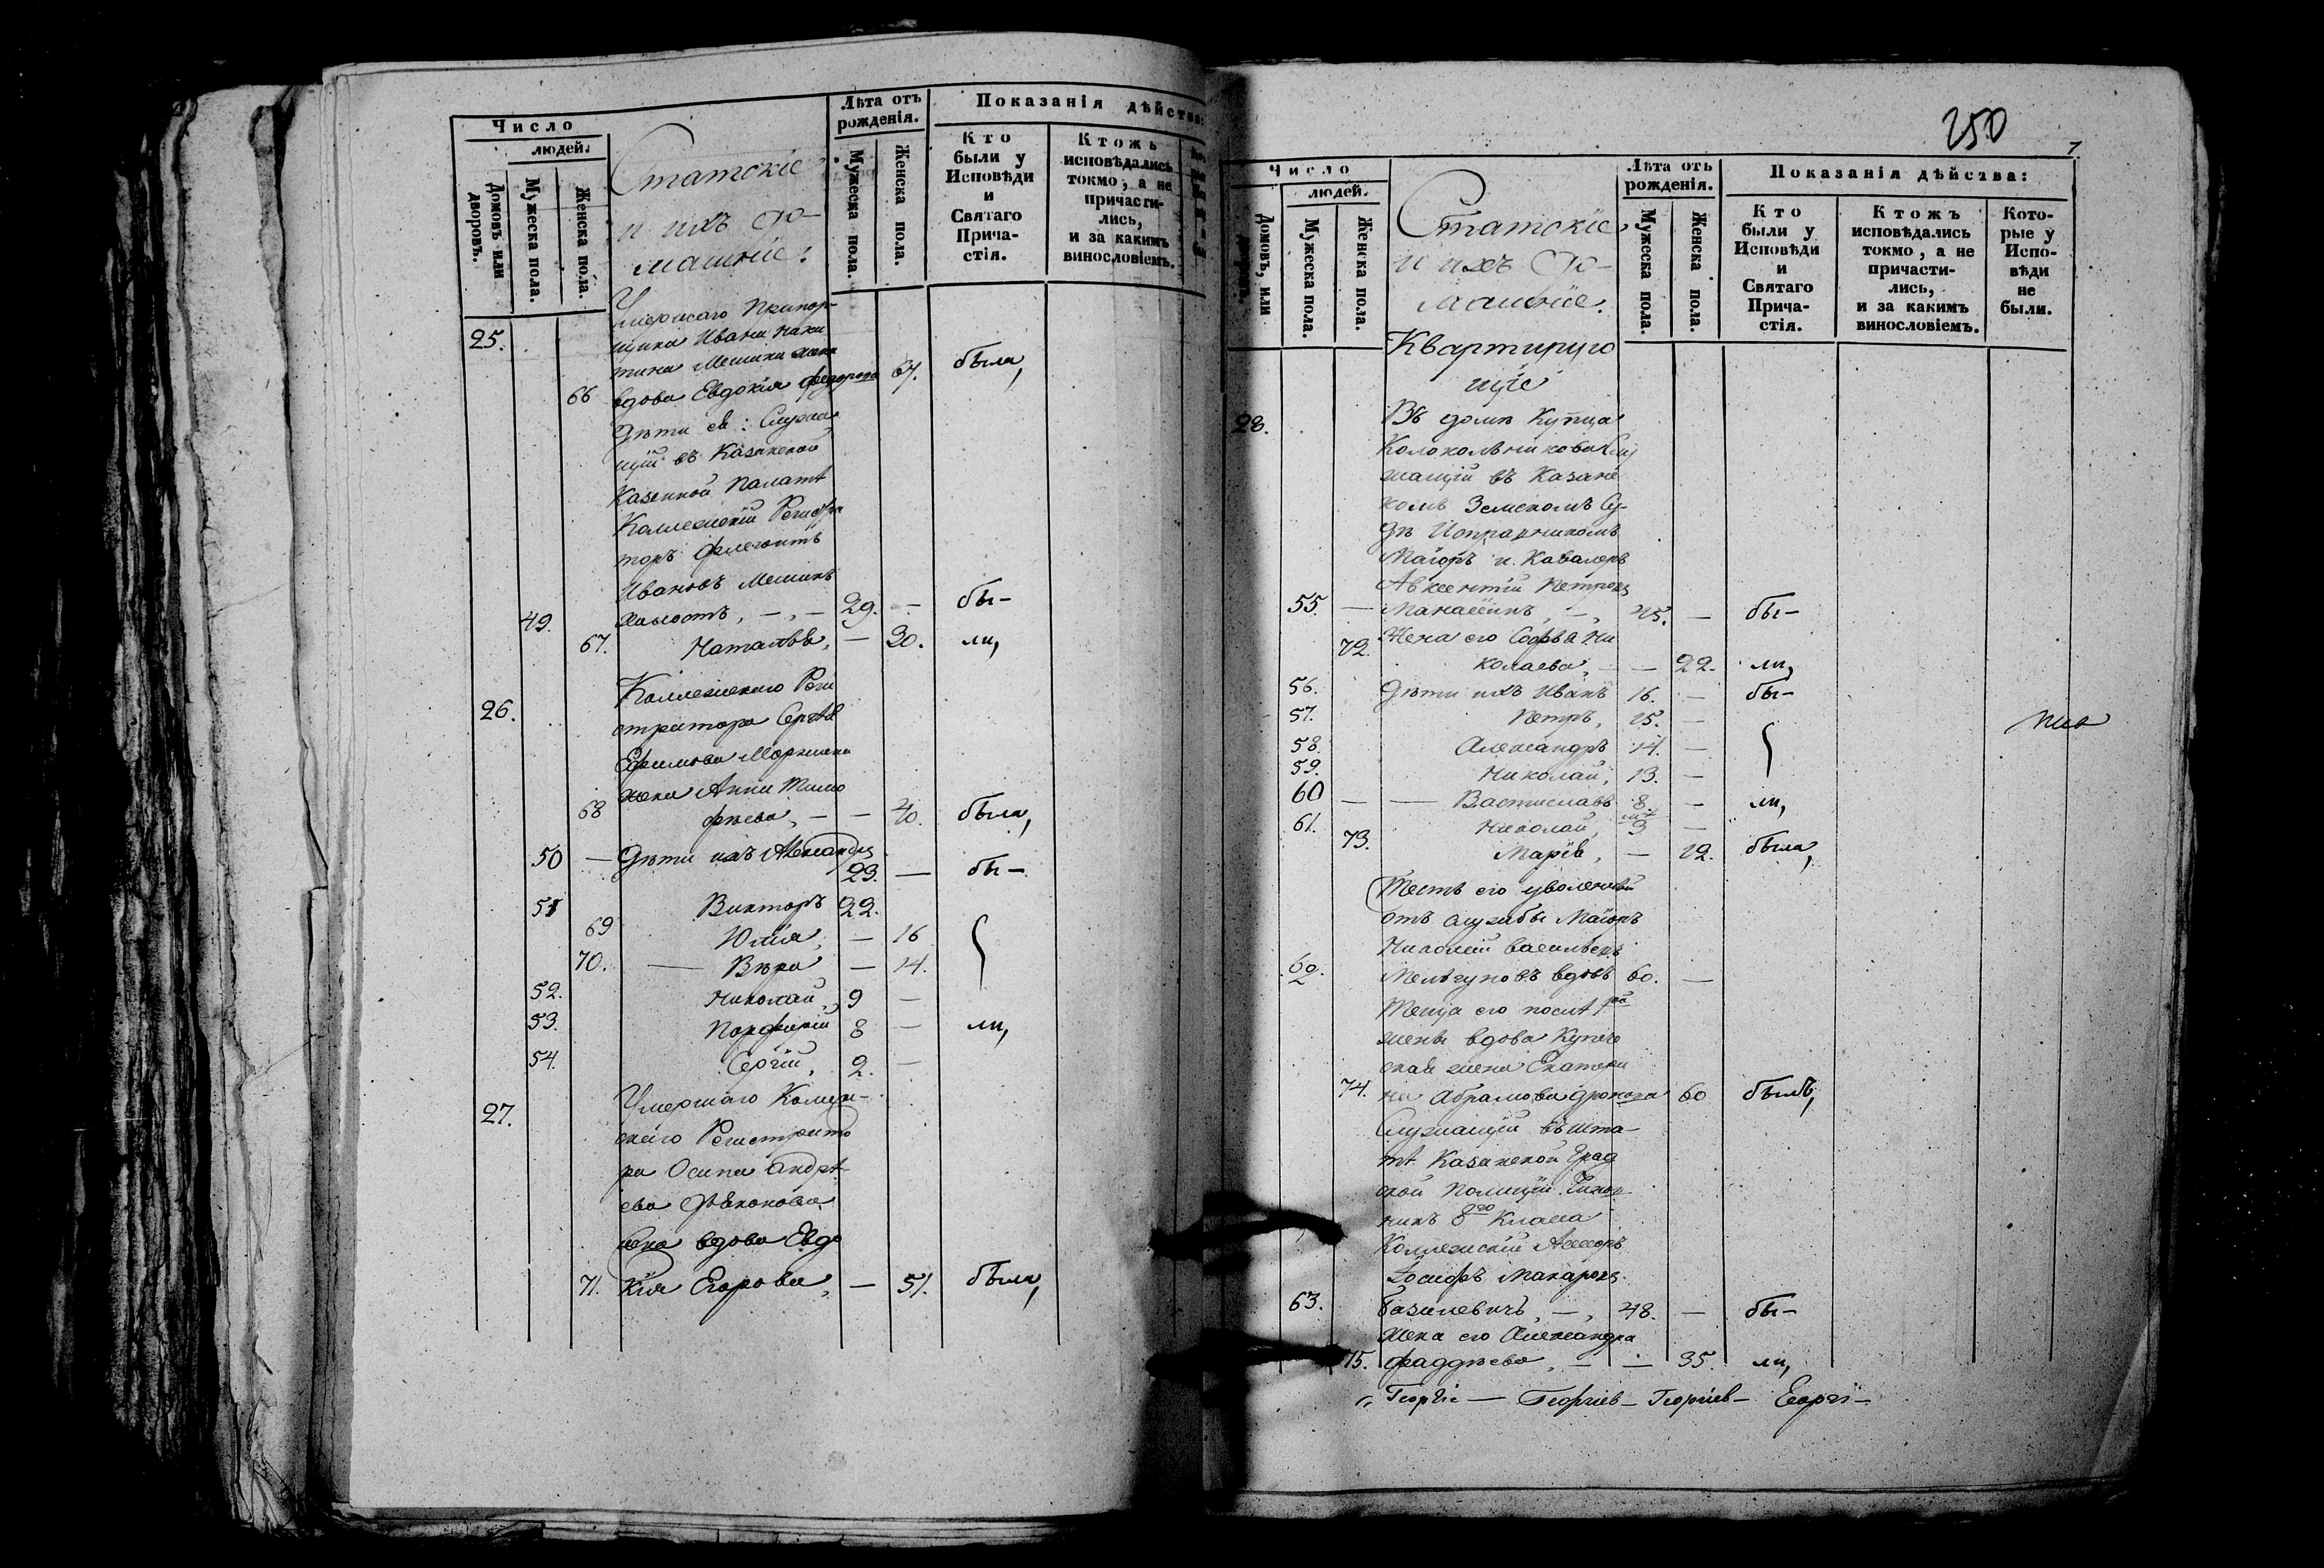 Число
людей.
Домовъ или дворовъ.
Мужеска пола.
Женска пола.
Статскіе
и ихъ до-
машніе:
Лѣта отъ рожденія.
Мужеска пола.
Женска пола.
Показанія дѣйства:
Кто были у Исповѣди и Святаго Прича-стія.
Ктожъ исповѣдались токмо, а не причасти-лись, и за какимъ винословіемъ.
25.
Умершаго Прапор-
щика Ивана
жена
66 вдова Евдокія Федорова 67. была,
Дѣти ея: Служа
щій въ Казанской
Казенной Палатѣ
Коллежскій Регистра
торъ
Ивановъ
49. холостъ, — , — 29. — бы-
67. Наталья, — 30. ли,
26. Коллежскаго Реги
стратора Сергѣя
Ефимова
жена Анна Тимо
68 фѣева, — — 40. была,
50 — Дѣти ихъ Александръ
23. — бы-
51 Викторъ 22.
69 Юлія, — 16
70. — Вѣра, — 14.
52. Николай, 9 —
53. Порфирій 8 — ли,
54. Сергій, 2. —
27. Умершаго Коллеж-
скаго Регистрато
ра Осипа Андрѣ
ева Дьяконова
жена вдова Евдо
71. кія Егорова, — 51. была,
250
7.
Число
людей.
Домовъ, или дворовъ.
Мужеска пола.
Женска пола.
Статскіе
и ихъ до-
машніе.
Лѣта отъ рожденія.
Мужеска пола.
Женска пола.
Показанія дѣйства:
Кто были у Исповѣди и Святаго Прича-стія.
Ктожъ исповѣдались токмо, а не причасти-лись, и за какимъ винословіемъ.
Кото-рые у Испо-вѣди не были.
Квартирую
щіе
28. Въ домѣ Купца
Колокольникова Слу
жащій въ Казанс
комъ Земскомъ Су-
дѣ Исправникомъ
Маіоръ и Кавалеръ
Авксентій Петровъ
55. — Манасеинъ, — , 45. — бы-
72. Жена его Софья Ни
колаева, — — 22. ли,
56. Дѣти ихъ Иванъ 16. — бы-
57. Петръ, 15. —
58. Александръ 14. —
59. Николай, 13. —
60 — — Вастиславъ 8. — ли,
61. Николай, 3 —
73. Марія, — 12. была,
Тесть его уволенный
отъ службы Маіоръ
Николай Васильевъ
62. Мельгуновъ вдовъ 60. —
Теща его послѣ 1й
жены вдова Купече
ская жена Екатери
74. на Абрамова 60 была,
Служащій въ шта-
тѣ Казанской Град
ской Полиціи Чинов
никъ 8го Класса
Коллежскій Асесоръ
Іосифъ Макаровъ
63. Базилевичъ, — , 48. — бы-
жена его Александра
75. Фаддѣева, — — 35. ли,
Георгіе — Георгіев — Георгіев — Георгі —